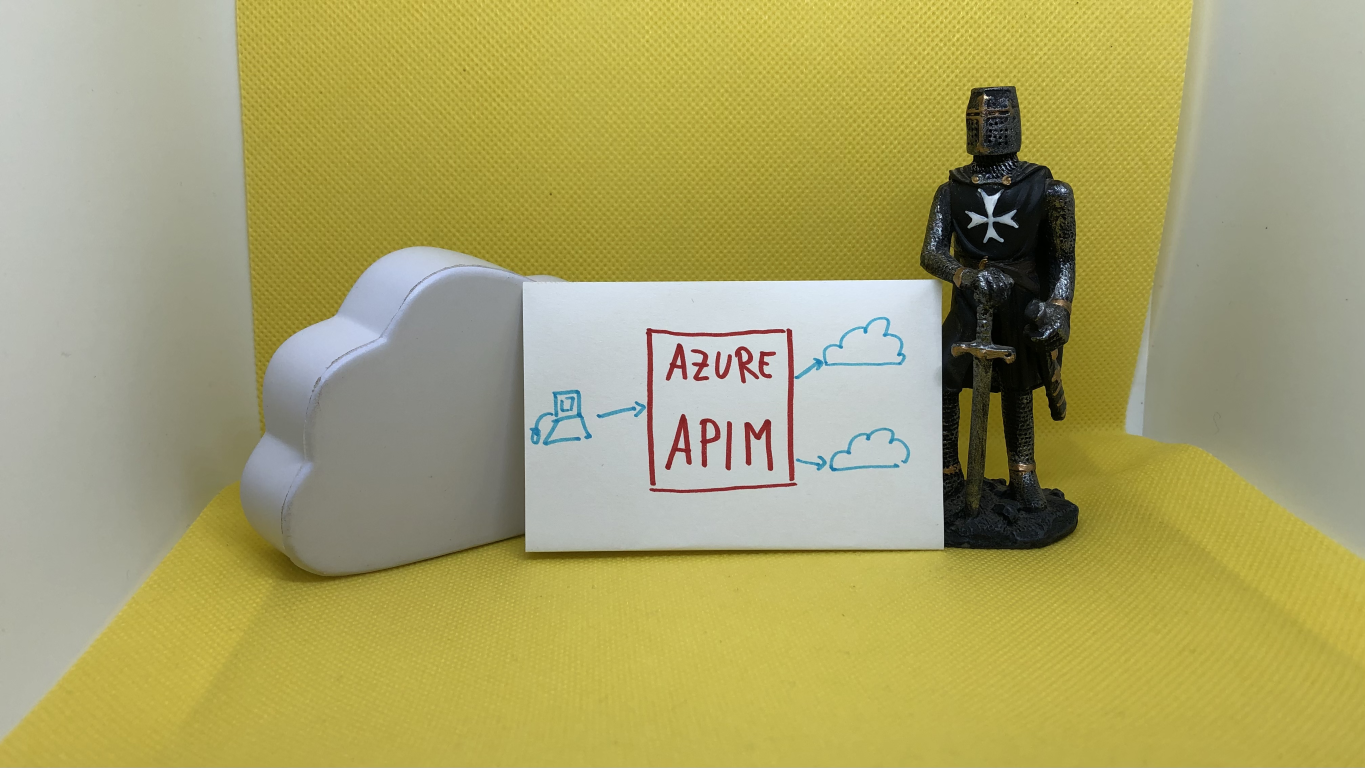 AZURE
APIM